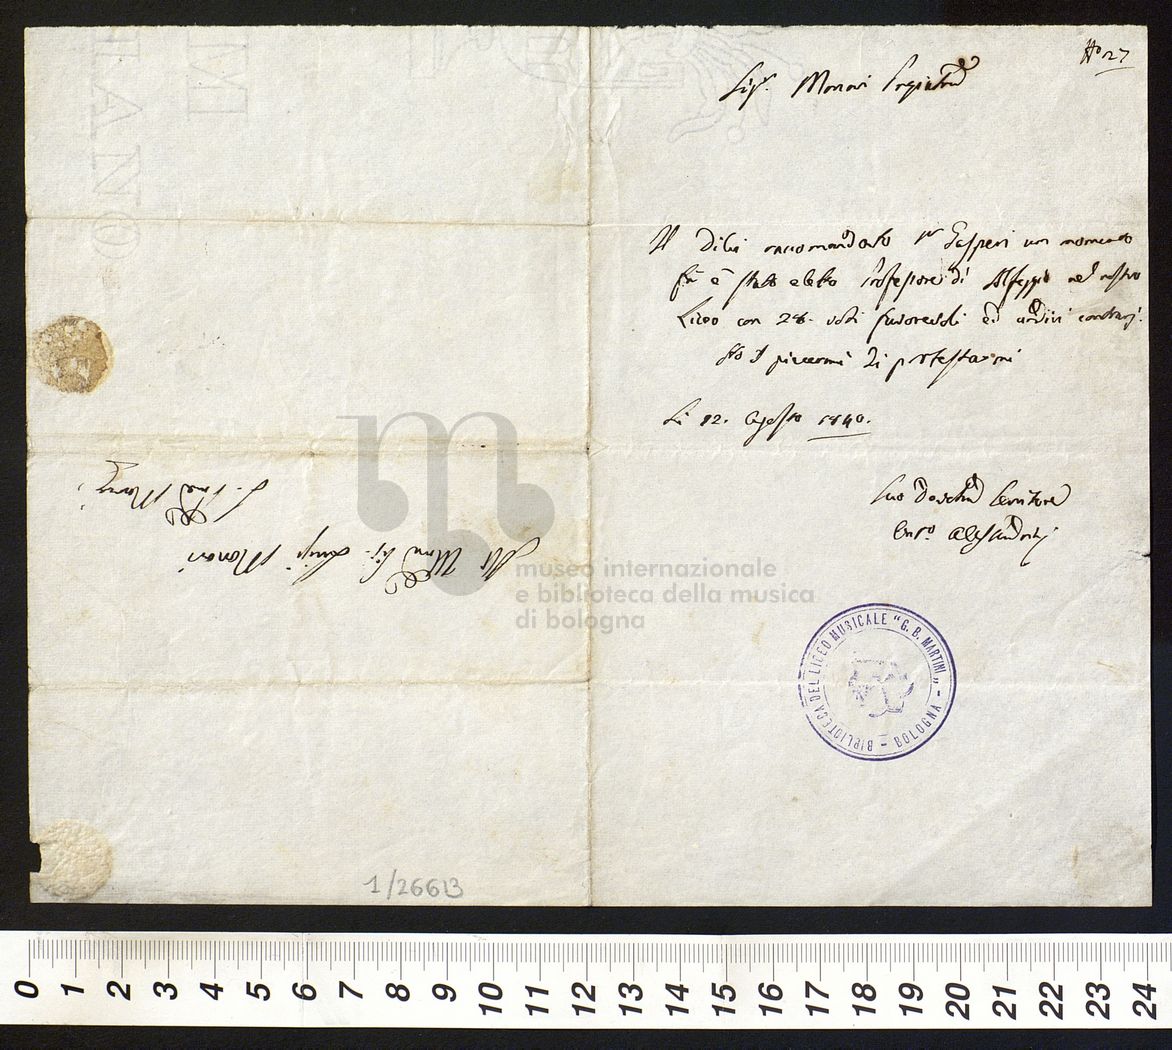 No 27
Sigr. Monari Pregiatmo
Il di lei raccomandato Sr Gasperi un momento
fà è stato eletto Professore di Solfeggio nel nostro
Liceo con 28. voti favorevoli ed undici contrarj.
Ho il piacere di protestarmi
Li 12. Agosto 1840.
Suo Devotmo Servitore
Cesr. Alessandretti
All' Illmo Sig. Luigi Monari
S. P. M.
museo internazionale
e biblioteca della musica
di bologna
BIBLIOTECA DEL LICEO MUSICALE "G. B. MARTINI" - BOLOGNA -
1/26613
0 1 2 3 4 5 6 7 8 9 10 11 12 13 14 15 16 17 18 19 20 21 22 23 24